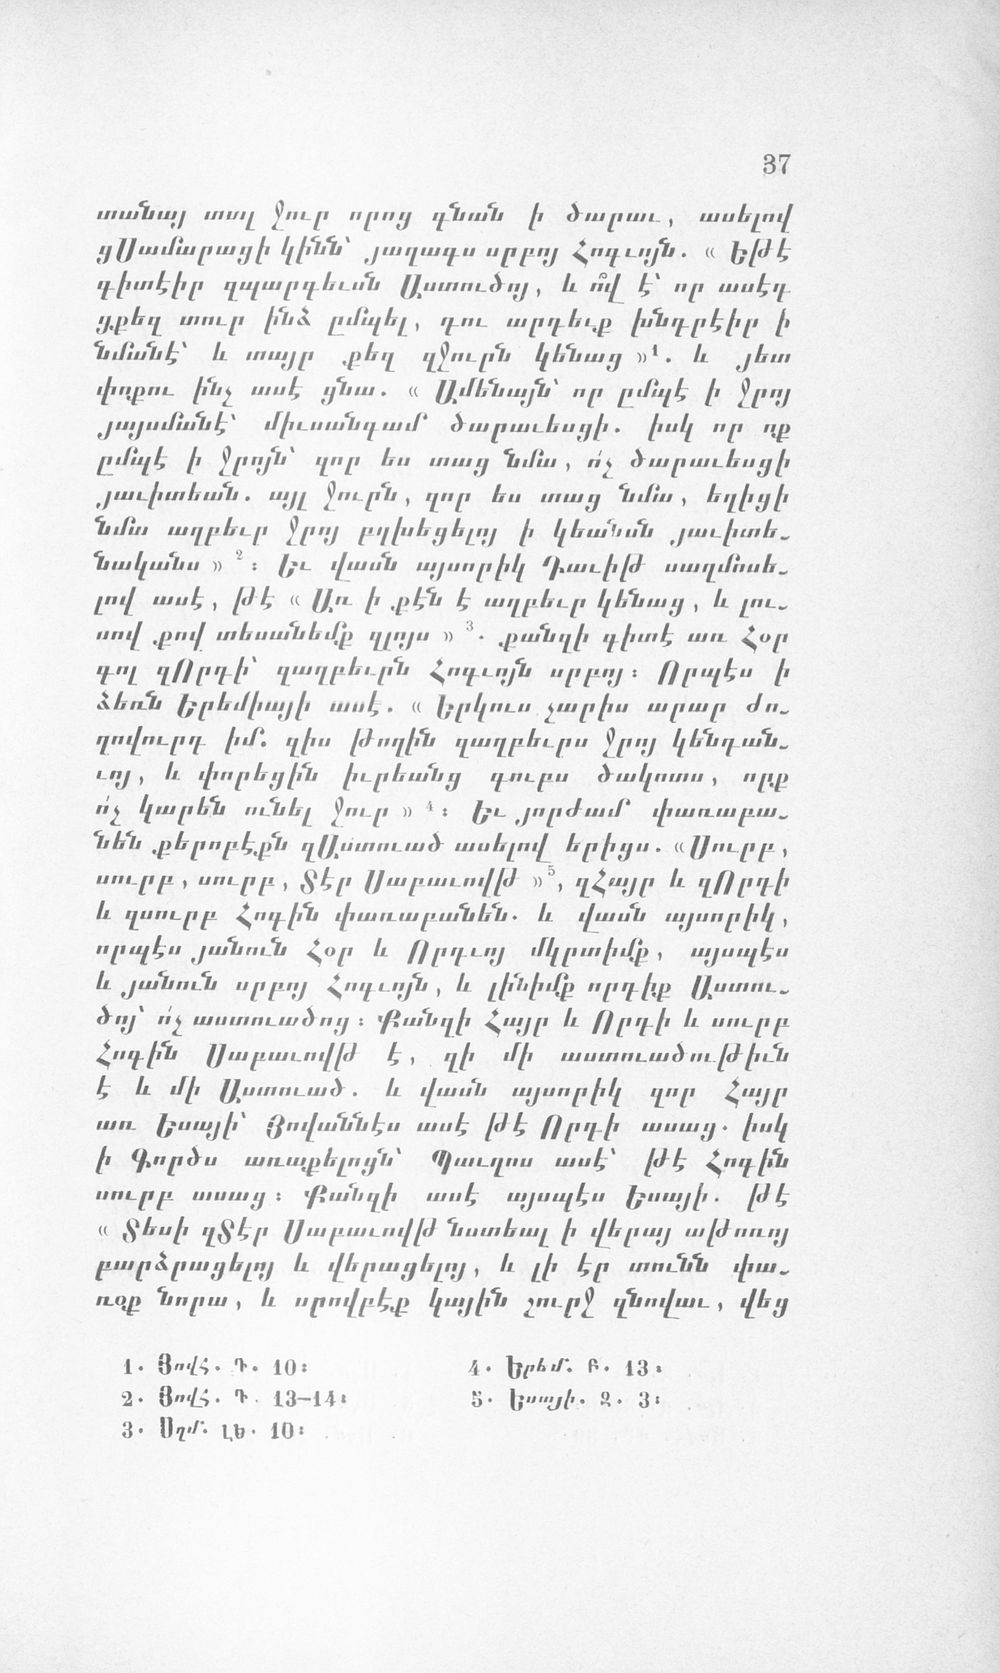 37
տանայ տալ ջուր որոց գնան ի ծարաւ, ասելով
ցՍամարացի կինն՝ յաղագս սրբոյ Հոգւոյն. « Եթէ
գիտէիր զպարգեւսն Աստուծոյ, և ո՞վ է՝ որ ասէդ
ցքեզ տուր ինձ ըմպել, դու արդեւք խնդրէիր ի
նմանէ՝ և տայր քեզ զջուրն կենաց »¹. և յետ
փոքու ինչ ասէ ցնա. « Ամենայն՝ որ ըմպէ ի ջրոյ
յայսմանէ՝ միւսանգամ ծարաւեսցի. իսկ որ ոք
ըմպէ ի ջրոյն՝ զոր ես տաց նմա, ո՛չ ծարաւեսցի
յաւիտեան. այլ ջուրն, զոր ես տաց նմա, եղիցի
նմա աղբեւր ջրոյ բղխեցելոյ ի կեանսն յաւիտե֊
նականս » ²: Եւ վասն այսորիկ Դաւիթ սաղմոսե֊
լով ասէ, թէ « Առ ի քէն է աղբեւր կենաց, և լու֊
սով քով տեսանեմք զլոյս » ³. քանզի գիտէ առ Հօր
գոլ զՈրդի՝ զաղբեւրն Հոգւոյն սրբոյ: Որպէս ի
ձեռն Երեմիայի ասէ. « Երկուս չարիս արար ժո֊
ղովուրդ իմ. զիս թողին զաղբեւրս ջրոյ կենդան֊
ւոյ, և փորեցին իւրեանց գուբս ծակոտս, որք
ո՛չ կարեն ունել ջուր » ⁴: Եւ յորժամ փառաբա֊
նեն քերոբէքն զԱստուած ասելով երիցս. «Սուրբ,
սուրբ, սուրբ, Տէր Սաբաւովթ »⁵, զՀայր և զՈրդի
և զսուրբ Հոգին փառաբանեն. և վասն այսորիկ,
որպէս յանուն Հօր և Որդւոյ մկրտիմք, այսպէս
և յանուն սրբոյ Հոգւոյն, և լինիմք որդիք Աստու֊
ծոյ՝ ո՛չ աստուածոց: Քանզի Հայր և Որդի և սուրբ
Հոգին Սաբաւովթ է, զի մի աստուածութիւն
է և մի Աստուած. և վասն այսորիկ զոր Հայր
առ Եսայի՝ Յովաննէս ասէ թէ Որդի ասաց. իսկ
ի Գործս առաքելոցն՝ Պաւղոս ասէ՝ թէ Հոգին
սուրբ ասաց: Քանզի ասէ այսպէս Եսայի. թէ
« Տեսի զՏէր Սաբաւովթ նստեալ ի վերայ աթոռոյ
բարձրացելոյ և վերացելոյ, և լի էր տունն փա֊
ռօք նորա, և սրովբէք կային շուրջ զնովաւ, վեց
1. Յովհ. Դ. 10:
2. Յովհ. Դ. 13–14:
3. Սղմ. ԼԵ. 10:
4. Երեմ. Բ. 13:
5. Եսայի. Զ. 3: